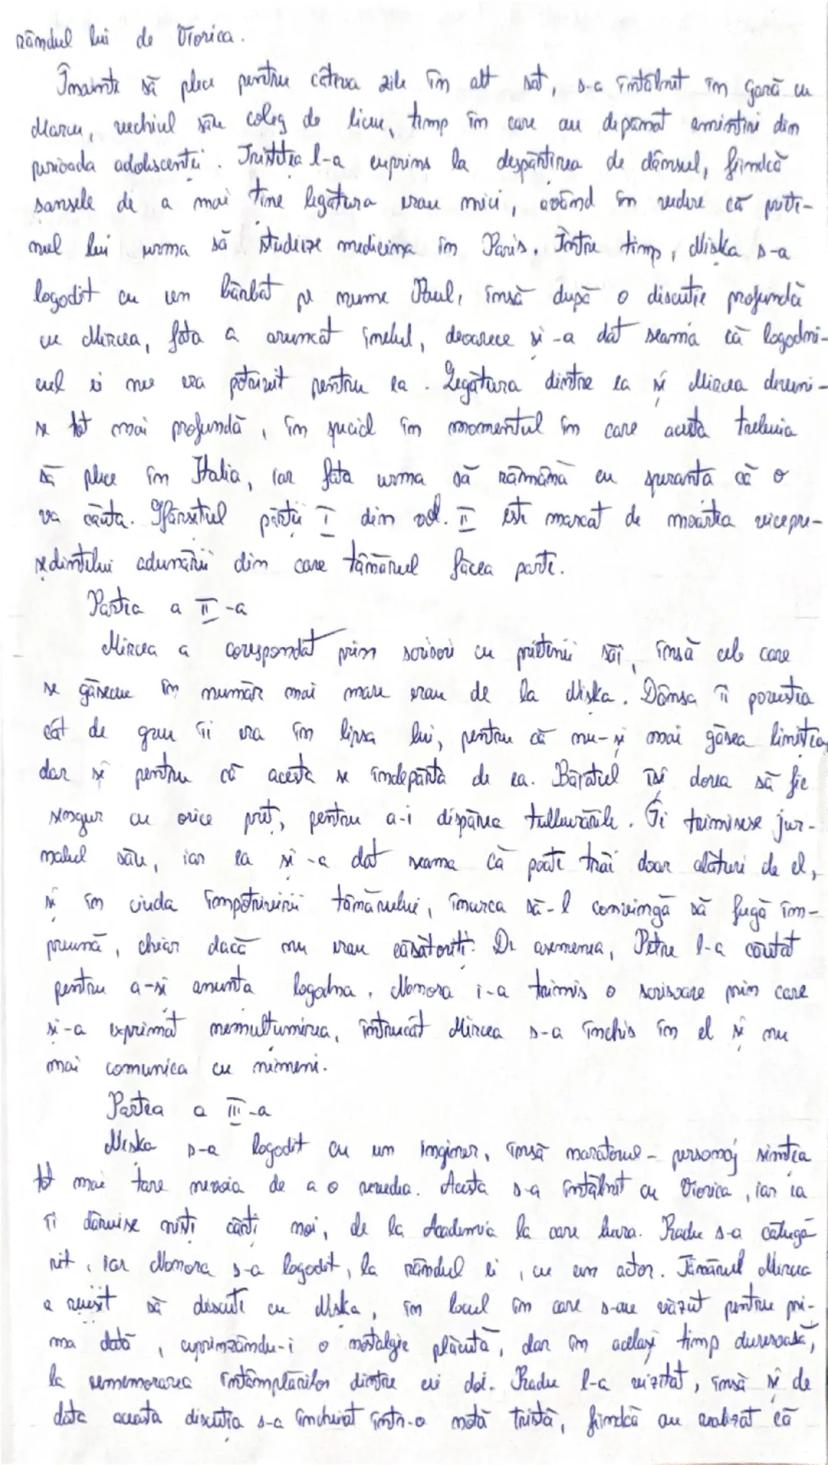 rândul lui de Viorica.
Înainte să plece pentru câteva zile în alt sat, s-a întâlnit în gară cu
Marcu, vechiul său coleg de liceu, timp în care au depănat amintiri din
perioada adolescenței. Tristețea l-a cuprins la despărțirea de dânsul, fiindcă
șansele de a mai ține legătura erau mici, având în vedere că priete-
nul lui urma să studieze medicina în Paris. Între timp, Niska s-a
logodit cu un bărbat pe nume Paul, însă după o discuție profundă
cu Mircea, fata a aruncat inelul, deoarece și-a dat seama că logodni-
cul ei nu era potrivit pentru ea. Legătura dintre ea și Mircea deveni-
se tot mai profundă, în special în momentul în care acesta trebuia
să plece în Italia, iar fata urma să rămână cu speranța că o
va căuta. Sfârșitul părții I din vol. II este marcat de moartea vicepre-
ședintelui adunării din care tânărul făcea parte.
Partea a II-a
Mircea a corespondat prin scrisori cu prietenii săi, însă cele care
se găseau în număr mai mare erau de la Niska. Dânsa îi povestea
cât de greu îi era în lipsa lui, pentru că nu-și mai găsea liniștea,
dar și pentru că acesta se îndepărta de ea. Băiatul își dorea să fie
singur cu orice preț, pentru a-i dispărea tulburările. Îi trimisese jur-
nalul său, iar ea și-a dat seama că poate trăi doar alături de el,
și în ciuda împotrivirii tânărului, încerca să-l convingă să fugă îm-
preună, chiar dacă nu erau căsătoriți. De asemenea, Petre l-a căutat
pentru a-și anunța logodna. Nonora i-a trimis o scrisoare prin care
și-a exprimat nemulțumirea, întrucât Mircea s-a închis în el și nu
mai comunica cu nimeni.
Partea a III-a
Niska s-a logodit cu un inginer, însă naratorul-personaj simțea
tot mai tare nevoia de a o revedea. Acesta s-a întâlnit cu Viorica, iar ea
îi dăruise niște cărți noi, de la Academia la care lucra. Radu s-a călugă-
rit, iar Nonora s-a logodit, la rândul ei, cu un actor. Tânărul Mircea
a reușit să discute cu Niska, în locul în care s-au văzut pentru pri-
ma dată, cuprinzându-i o nostalgie plăcută, dar în același timp dureroasă,
la rememorarea întâmplărilor dintre ei doi. Radu l-a vizitat, însă și de
data aceasta discuția s-a încheiat într-o notă tristă, fiindcă au realizat că